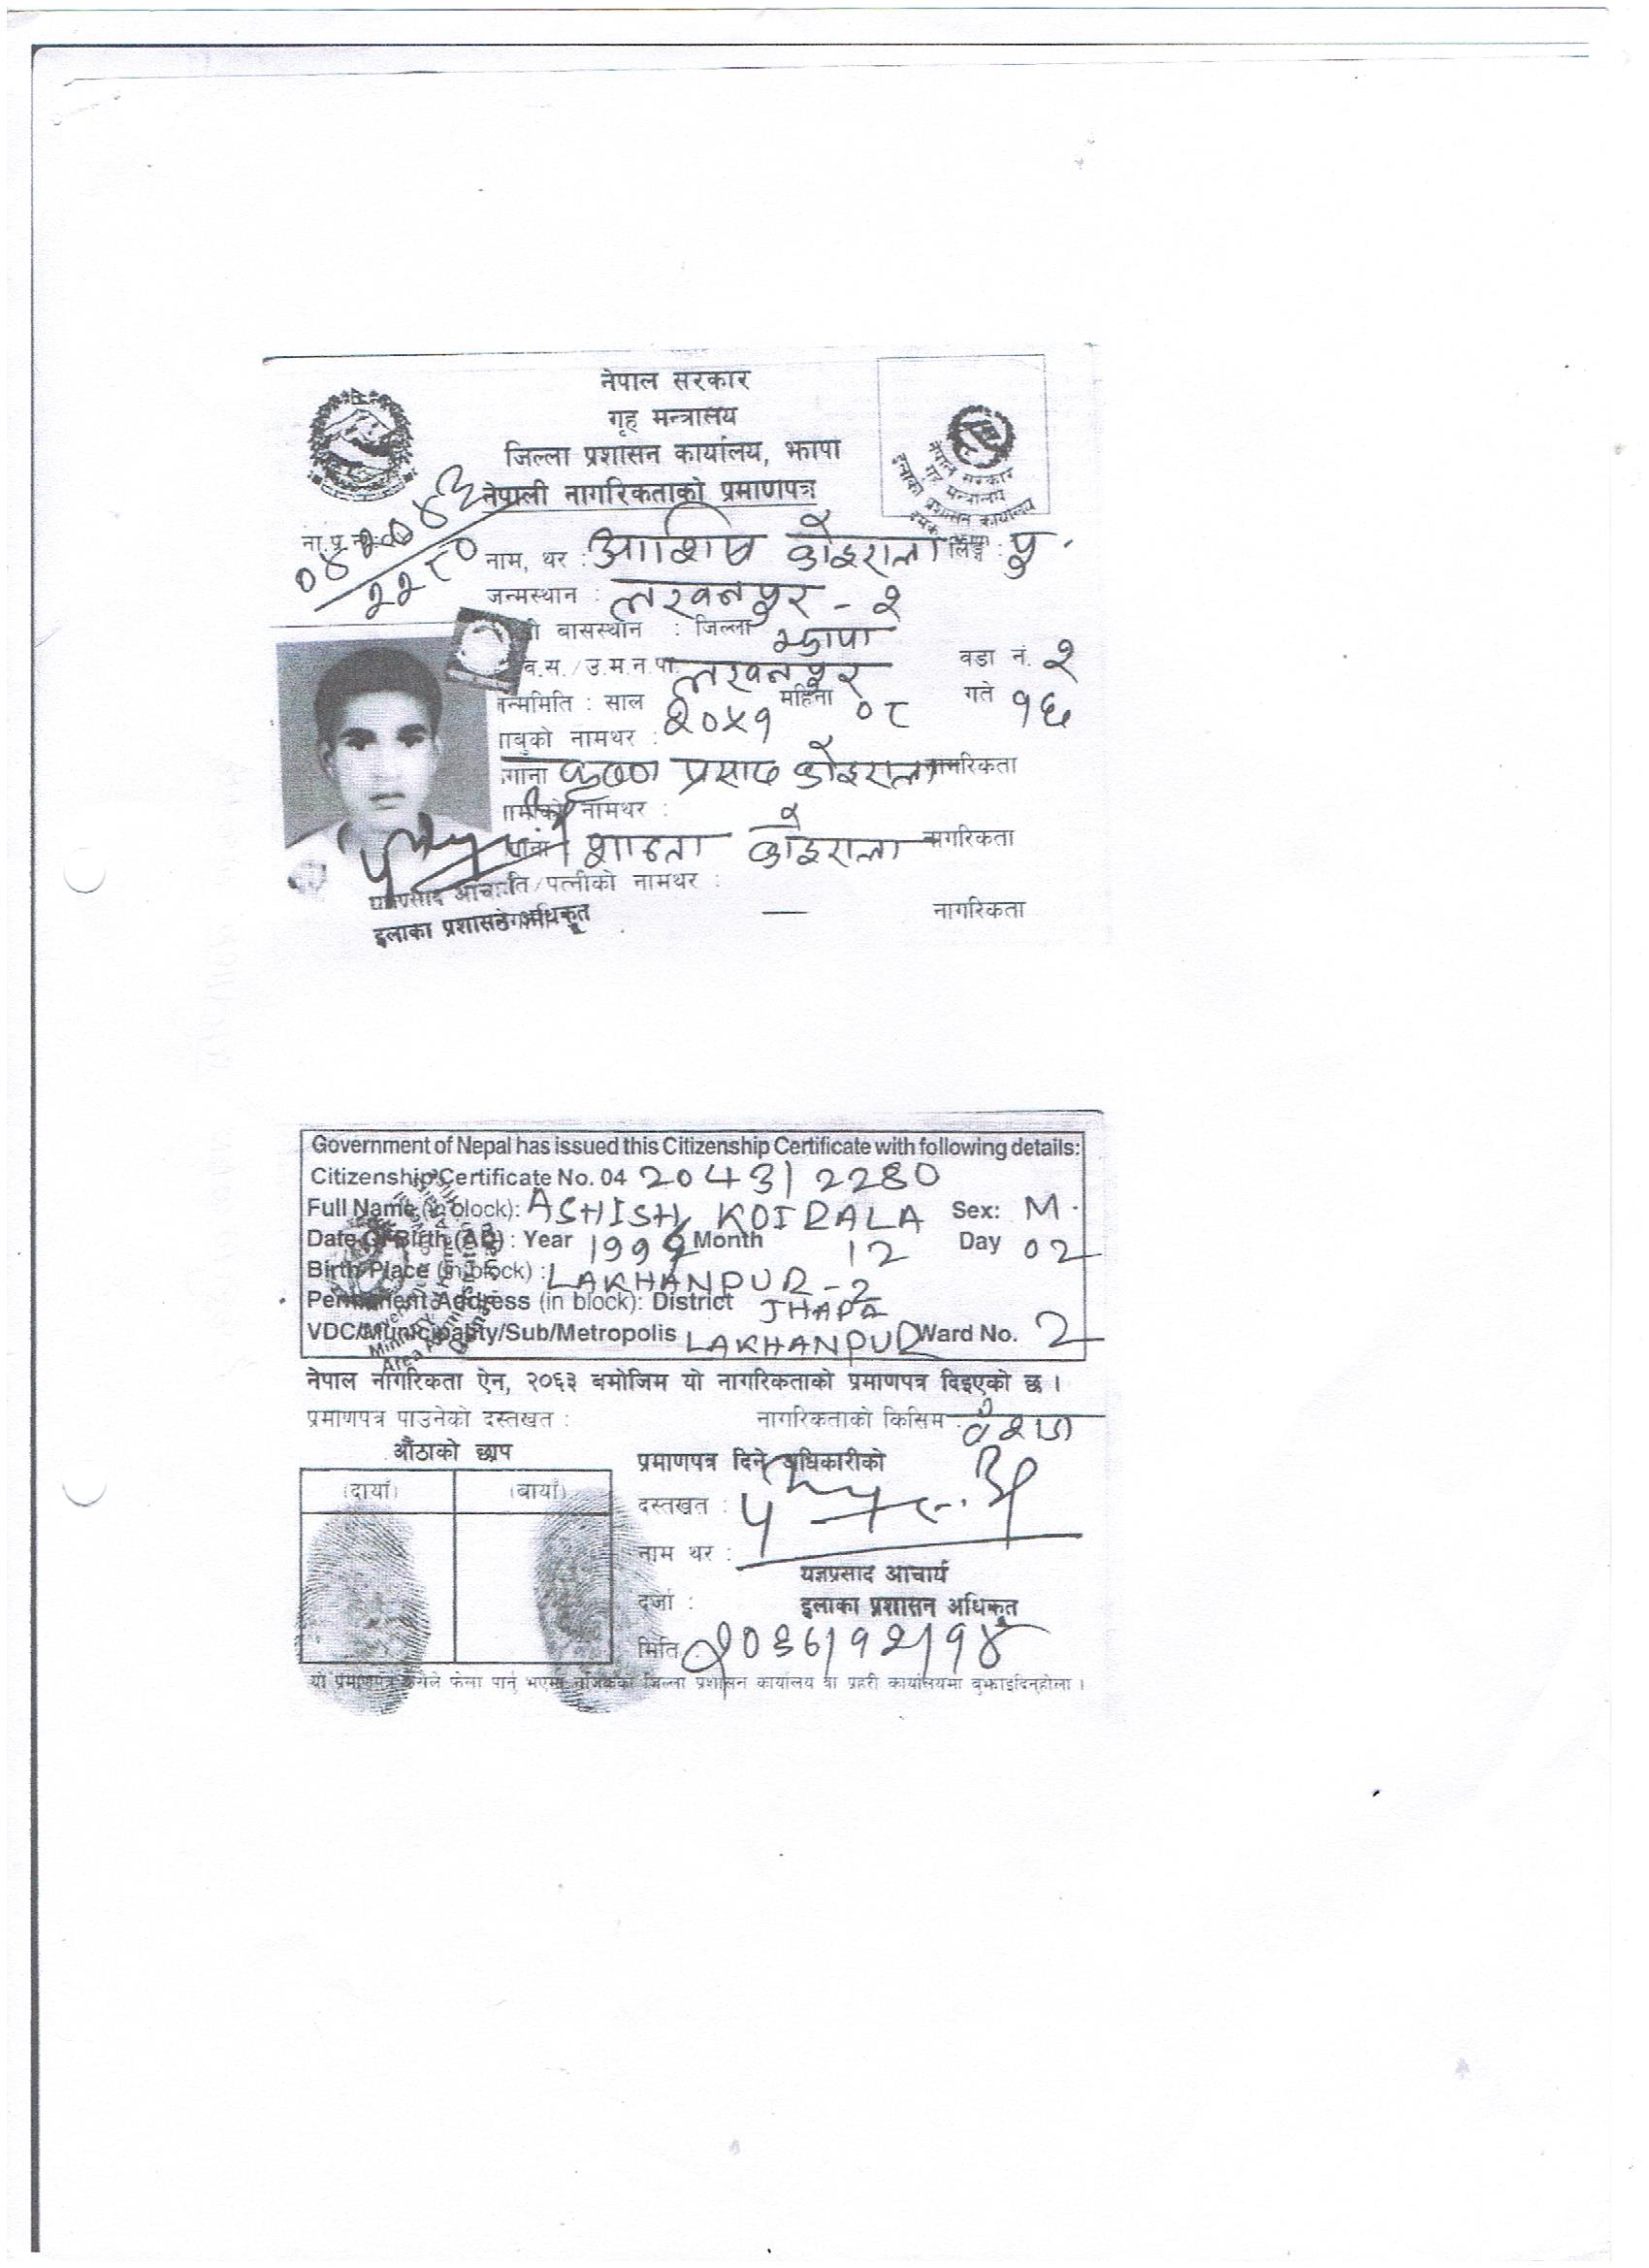 नेपाल सरकार
गृह मन्त्रालय
जिल्ला प्रशासन कार्यालय, झापा
नेपाली नागरिकताको प्रमाणपत्र
नेपाल सरकार
गृह मन्त्रालय
इलाका प्रशासन कार्यालय
ना.प्र.नं.
२२८०
नाम, थर : आशिष कोइराला लिङ्ग : पु.
जन्मस्थान : लखनपुर - २
बासस्थान : जिल्ला झापा
/उ.म.न.पा. लखनपुर वडा नं. २
साल २०५१ महिना ०८ गते १६
नामथर :
कृष्ण प्रसाद कोइराला नागरिकता
नामथर :
शान्ता कोइराला नागरिकता
/पत्नीको नामथर :
— नागरिकता
इलाका प्रशासन अधिकृत
Government of Nepal has issued this Citizenship Certificate with following details:
Citizenship Certificate No. 04 2043/2280
Full Name (in block): ASHISH KOIRALA Sex: M.
Date Of Birth (AD) : Year Month 12 Day 02
Birth Place (in block) : LAKHANPUR - 2
Permanent Address (in block): District JHAPA
VDC/Municipality/Sub/Metropolis LAKHANPUR Ward No. 2
नेपाल नागरिकता ऐन, २०६३ बमोजिम यो नागरिकताको प्रमाणपत्र दिइएको छ ।
प्रमाणपत्र पाउनेको दस्तखत :
नागरिकताको किसिम : वंशज
औंठाको छाप
(दायाँ) (बायाँ)
प्रमाणपत्र दिने अधिकारीको
दस्तखत :
नाम थर :
यज्ञप्रसाद आचार्य
दर्जा : इलाका प्रशासन अधिकृत
मिति :
यो प्रमाणपत्र कसैले फेला पार्नु भएमा नजिकको जिल्ला प्रशासन कार्यालय वा प्रहरी कार्यालयमा बुझाइदिनुहोला ।